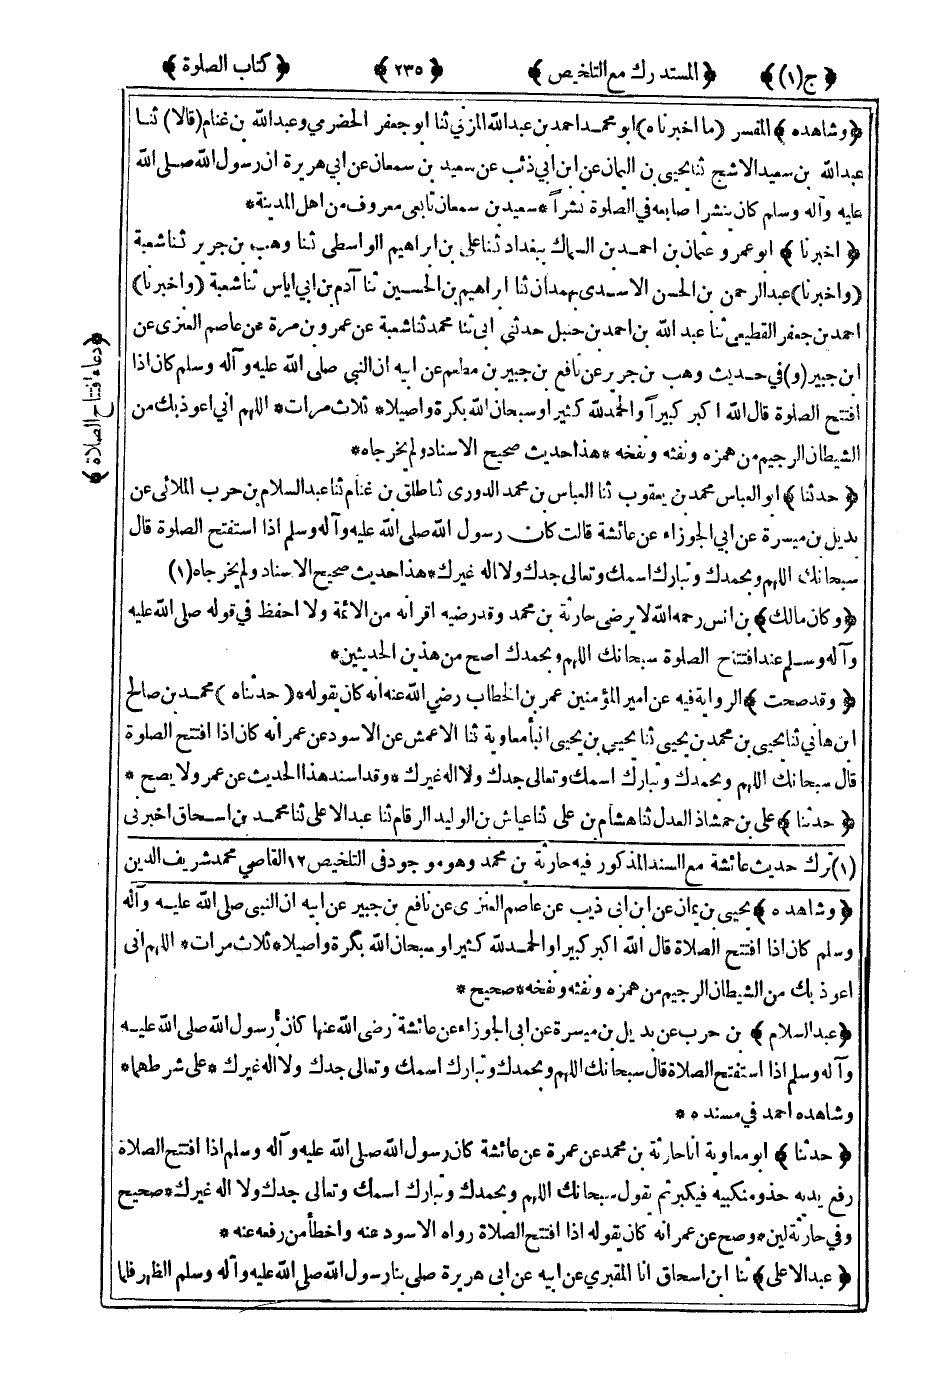 ﴿ج(١)﴾ ﴿المستدرك مع التلخيص﴾ ﴿٢٣٥﴾ ﴿كتاب الصلوة﴾
﴿وشاهده﴾ المفسر (ما اخبرناه) ابو محمد احمد بن عبدالله المزني ثنا ابو جعفر الحضرمي وعبدالله بن غنام (قالا) ثنا
عبدالله بن سعيد الاشج ثنا يحيى بن اليمان عن ابن ابي ذئب عن سعيد بن سمعان عن ابي هريرة ان رسول الله صلى الله
عليه وآله وسلم كان ينشر اصابعه في الصلوة نشراً * سعيد بن سمعان تابعي معروف من اهل المدينة *
﴿اخبرنا﴾ ابو عمرو عثمان بن احمد بن السماك ببغداد ثنا على بن ابراهيم الواسطى ثنا وهب بن جرير ثنا شعبة
(واخبرنا) عبدالرحمن بن الحسن الاسدى بهمدان ثنا ابراهيم بن الحسين ثنا آدم بن ابي اياس ثنا شعبة (واخبرنا)
احمد بن جعفر القطيعي ثنا عبدالله بن احمد بن حنبل حدثني ابي ثنا محمد ثنا شعبة عن عمرو بن مرة عن عاصم العنزى عن
ابن جبير (و) في حديث وهب بن جرير عن نافع بن جبير بن مطعم عن ابيه ان النبي صلى الله عليه وآله وسلم كان اذا
افتتح الصلوة قال الله اكبر كبيراً والحمدلله كثيرا وسبحان الله بكرة واصيلا * ثلاث مرات * اللهم اني اعوذ بك من
الشيطان الرجيم من همزه ونفثه ونفخه * هذا حديث صحيح الاسناد ولم يخرجاه *
﴿حدثنا﴾ ابو العباس محمد بن يعقوب ثنا العباس بن محمد الدورى ثنا طلق بن غنام ثنا عبدالسلام بن حرب الملائى عن
بديل بن ميسرة عن ابي الجوزاء عن عائشة قالت كان رسول الله صلى الله عليه وآله وسلم اذا استفتح الصلوة قال
سبحانك اللهم وبحمدك وتبارك اسمك وتعالى جدك ولا اله غيرك * هذا حديث صحيح الاسناد ولم يخرجاه (١)
﴿وكان مالك﴾ بن انس رحمه الله لا يرضى حارثة بن محمد وقد رضيه اقرانه من الائمة ولا احفظ في قوله صلى الله عليه
وآله وسلم عند افتتاح الصلوة سبحانك اللهم وبحمدك اصح من هذين الحديثين *
﴿وقد صحت﴾ الرواية فيه عن امير المؤمنين عمر بن الخطاب رضي الله عنه انه كان يقوله * (حدثناه) محمد بن صالح
ابن هاني ثنا يحيى بن محمد بن يحيى ثنا يحيى بن يحيى انبأ معاوية ثنا الاعمش عن الاسود عن عمر أنه كان اذا افتتح الصلوة
قال سبحانك اللهم وبحمدك وتبارك اسمك وتعالى جدك ولا اله غيرك * وقد اسند هذا الحديث عن عمر ولا يصح *
﴿حدثنا﴾ علي بن حمشاذ العدل ثنا هشام بن على ثنا عياش بن الوليد الرقام ثنا عبدالاعلى ثنا محمد بن اسحاق اخبرنى
(١) ترك حديث عائشة مع السند المذكور فيه حارثة بن محمد وهو موجود فى التلخيص ١٢ القاضي محمد شريف الدين
﴿وشاهده﴾ يحيى بن يمان عن ابن ابى ذيب عن عاصم العنزى عن نافع بن جبير عن ابيه ان النبى صلى الله عليه وآله
وسلم كان اذا افتتح الصلاة قال الله اكبر كبيرا والحمدلله كثيرا وسبحان الله بكرة واصيلا * ثلاث مرات * اللهم انى
اعوذ بك من الشيطان الرجيم من همزه ونفثه ونفخه * صحيح *
﴿عبدالسلام﴾ بن حرب عن بديل بن ميسرة عن ابى الجوزاء عن عائشة رضى الله عنها كان رسول الله صلى الله عليه
وآله وسلم اذا استفتح الصلاة قال سبحانك اللهم وبحمدك وتبارك اسمك وتعالى جدك ولا اله غيرك * على شرطهما *
وشاهده احمد في مسنده *
﴿حدثنا﴾ ابو معاوية انا حارثة بن محمد عن عمرة عن عائشة كان رسول الله صلى الله عليه وآله وسلم اذا افتتح الصلاة
رفع يديه حذو منكبيه فيكبر ثم يقول سبحانك اللهم وبحمدك وتبارك اسمك وتعالى جدك ولا اله غيرك * صحيح
وفي حارثة لين * وصح عن عمر انه كان يقوله اذا افتتح الصلاة رواه الاسود عنه واخطأ من رفعه عنه *
﴿عبدالاعلى﴾ ثنا ابن اسحاق انا المقبري عن ابيه عن ابى هريرة صلى بنا رسول الله صلى الله عليه وآله وسلم الظهر فلما
﴿دعاء افتتاح الصلاة﴾